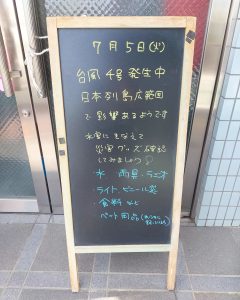 7月5日(火)
台風4号発生中
日本列島広範囲
で影響あるようです
水害にそなえて
災害グッズ確認
してみましょう
・水 雨具・ラジオ
・ライト、ビニール袋
・食料 など
ペット用品